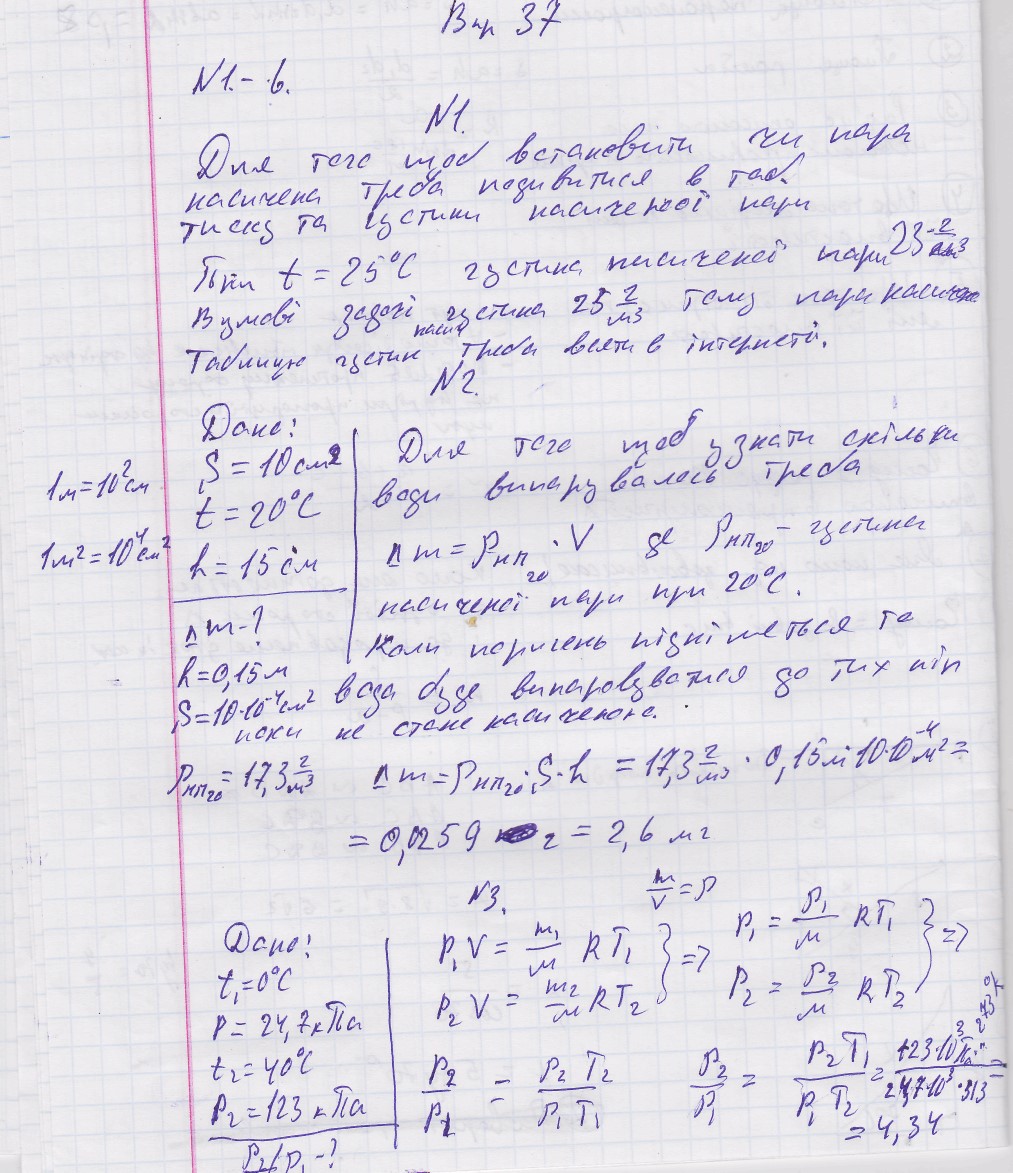 Впр 37
№1.- в.
№1.
Для того щоб встановити чи пара
насичена треба подивитися в таб.
тиску та густини насиченої пари
При t = 25°C густина насиченої пари 23 г/м³
В умові задачі густина 25 г/м³ тому пара насичена
Таблицю густин насич треба взяти в інтернеті.
№2.
Дано:
S = 10 см²
t = 20°C
h = 15 см
Δm-?
1м = 10² см
1м² = 10⁴ см²
h = 0,15 м
S = 10·10⁻⁴ см²
ρнп₂₀ = 17,3 г/м³
Для того щоб узнати скільки
води випарувалось треба
Δm = ρнп₂₀ · V де ρнп₂₀ - густина
насиченої пари при 20°C.
Коли поршень підніметься та
вода буде випаровуватися до тих пір
поки не стане насиченою.
Δm = ρнп₂₀ · S · h = 17,3 г/м³ · 0,15м·10·10⁻⁴м² =
= 0,0259 г = 2,6 мг
№3.
m/V = ρ
Дано:
t₁ = 0°C
P = 24,7 кПа
t₂ = 40°C
P₂ = 123 кПа
ρ₂/ρ₁ -?
P₁V = m₁/M RT₁
P₂V = m₂/M RT₂ } =>
P₁ = ρ₁/M RT₁
P₂ = ρ₂/M RT₂ } =>
P₂/P₁ = ρ₂T₂/ρ₁T₁
ρ₂/ρ₁ = P₂T₁/P₁T₂ = 123·10³Па·273°K/24,7·10³·313 =
= 4,34